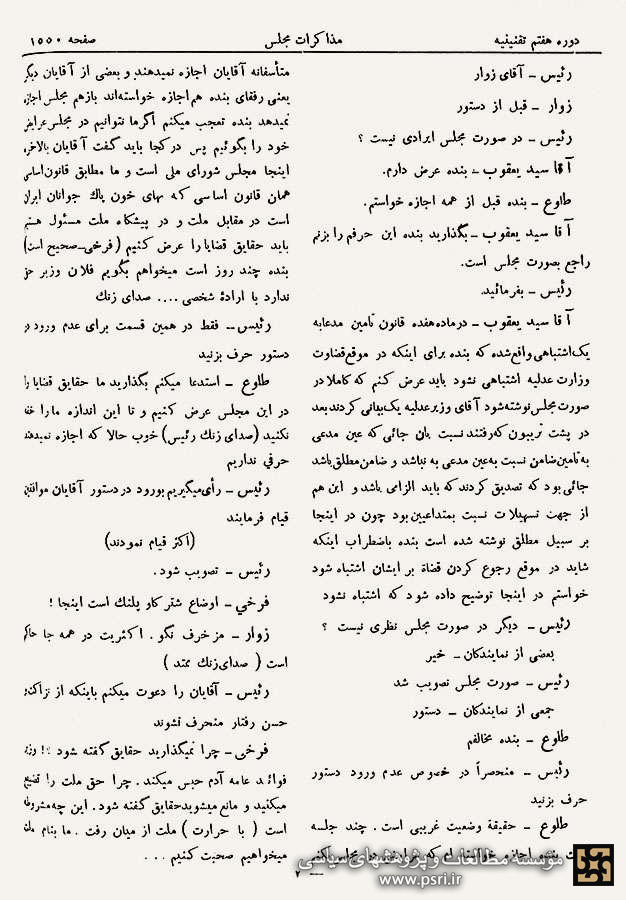 دوره هفتم تقنینیه
مذاکرات مجلس
صفحه ۱۵۵۰
رئیس – آقای زوار
زوار – قبل از دستور
رئیس – در صورت مجلس ایرادی نیست ؟
آقا سید یعقوب – بنده عرض دارم.
طلوع – بنده قبل از همه اجازه خواستم.
آقا سید یعقوب – بگذارید بنده این حرفم را بزنم
راجع بصورت مجلس است.
رئیس – بفرمائید.
آقا سید یعقوب – درماده هفده قانون تامین مدعابه
یک اشتباهی واقع شده که بنده برای اینکه در موقع قضاوت
وزارت عدلیه اشتباهی نشود باید عرض کنم که کاملا در
صورت مجلس نوشته شود آقای وزیر عدلیه یک بیانی کردند بعد
در پشت تریبون که رفتند نسبت بان جائی که عین مدعی
به تامین ضامن نسبت به عین مدعی به نباشد و ضامن مطلق باشد
جائی بود که تصدیق کردند که باید الزامی باشد و این هم
از جهت تسهیلات نسبت بمتداعیین بود چون در اینجا
بر سبیل مطلق نوشته شده است بنده باضطراب اینکه
شاید در موقع رجوع کردن قضاة بر ایشان اشتباه شود
خواستم در اینجا توضیح داده شود که اشتباه نشود
رئیس – دیگر در صورت مجلس نظری نیست ؟
بعضی از نمایندکان – خیر
رئیس – صورت مجلس تصویب شد
جمعی از نمایندکان – دستور
طلوع – بنده مخالفم
رئیس – منحصراً در خصوص عدم ورود دستور
حرف بزنید
طلوع – حقیقة وضعیت غریبی است . چند جلسه
بنده اجازه خواسته ام که
متأسفانه آقایان اجازه نمیدهند و بعضی از آقایان دیگر
یعنی رفقای بنده هم اجازه خواسته اند بازهم مجلس اجازه
نمیدهد بنده تعجب میکنم اگر ما نتوانیم در مجلس عرایض
خود را بگوئیم پس در کجا باید گفت آقایان بالاخره
اینجا مجلس شورای ملی است و ما مطابق قانون اساسی
همان قانون اساسی که بهای خون پاك جوانان ایران
است در مقابل ملت و در پیشگاه ملت مسئول هستیم
باید حقایق قضایا را عرض کنیم (فرخی – صحیح است)
بنده چند روز است میخواهم بگویم فلان وزیر حق
ندارد با ارادۀ شخصی .... صدای زنك
رئیس – فقط در همین قسمت برای عدم ورود در
دستور حرف بزنید
طلوع – استدعا میکنم بگذارید ما حقایق قضایا را
در این مجلس عرض کنیم و تا این اندازه ما را خفه
نکنید (صدای زنك رئیس) خوب حالا که اجازه نمیدهند
حرفي نداریم
رئیس – رأی میگیریم بورود در دستور آقایان موافقین
قیام فرمایند
(اکثر قیام نمودند)
رئیس – تصویب شود .
فرخي – اوضاع شتر کاو پلنك است اینجا !
زوار – مزخرف نگو . اکثریت در همه جا حاکم
است ( صدای زنك ممتد )
رئیس – آقایان را دعوت میکنم باینکه از نزاکت و
حسن رفتار منحرف نشوند
فرخی – چرا نمیگذارید حقایق گفته شود ؟! وزیر
فوائد عامه آدم حبس میکند . چرا حق ملت را تضییع
میکنید و مانع میشوید حقایق گفته شود . این چه مشروطه
است ( با حرارت ) ملت از میان رفت . ما بنام ملت
میخواهیم صحبت کنیم ...
– ۲
مؤسسه مطالعات و پژوهشهای سیاسی
www.psri.ir